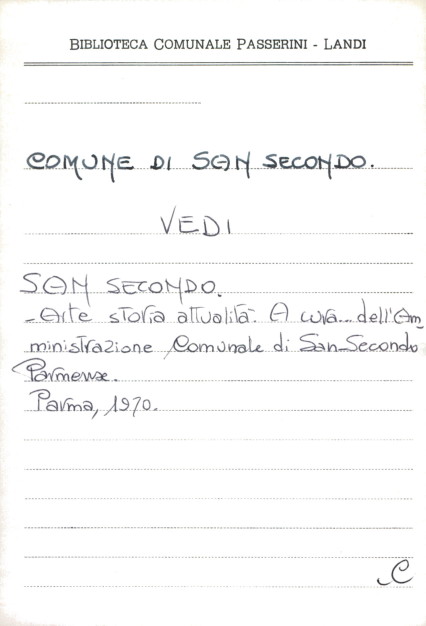 BIBLIOTECA COMUNALE PASSERINI - LANDI
COMUNE DI SAN SECONDO.
VEDI
SAN SECONDO.
- Arte storia attualità. A cura dell'Am
ministrazione Comunale di San Secondo
Parmense.
Parma, 1970.
C